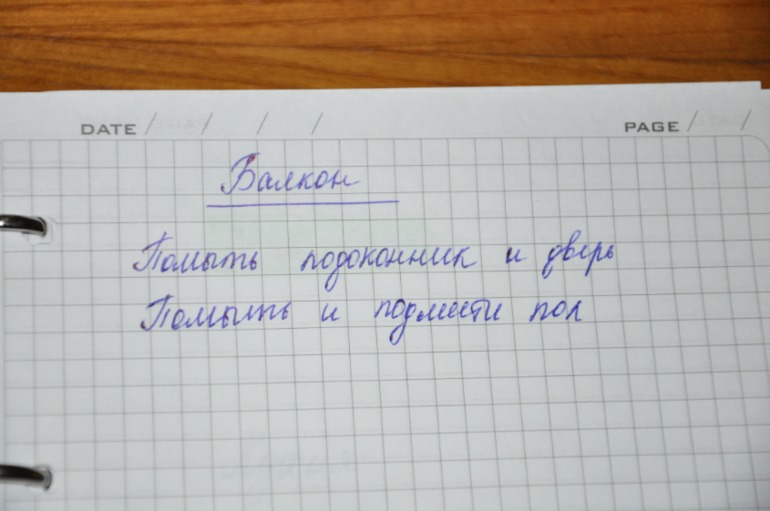 DATE / / / / PAGE / /
Балкон
Помыть подоконник и дверь
Помыть и подмести пол